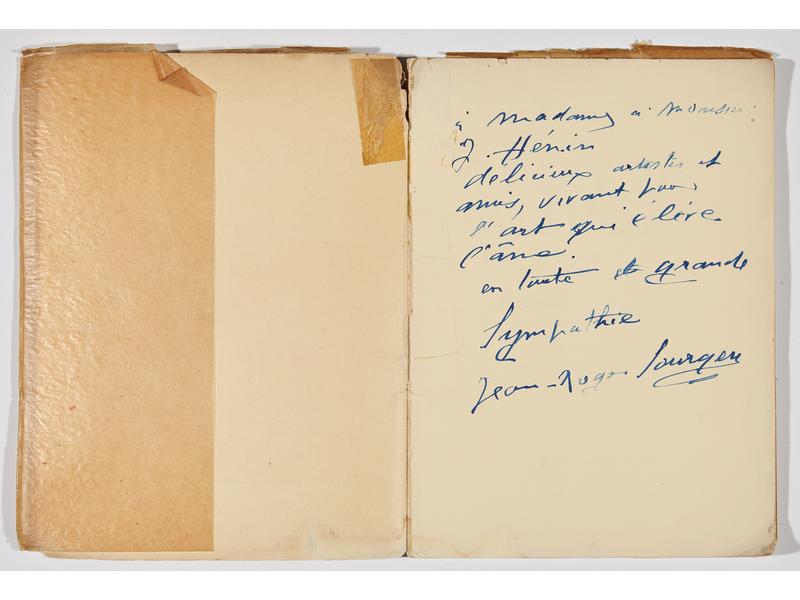 à madame à monsieur
J. Hénin
délicieux artistes et
amis, vivant pour
l'art qui élève
l'âme.
en toute et grande
Sympathie
Jean-Roger Sourgen